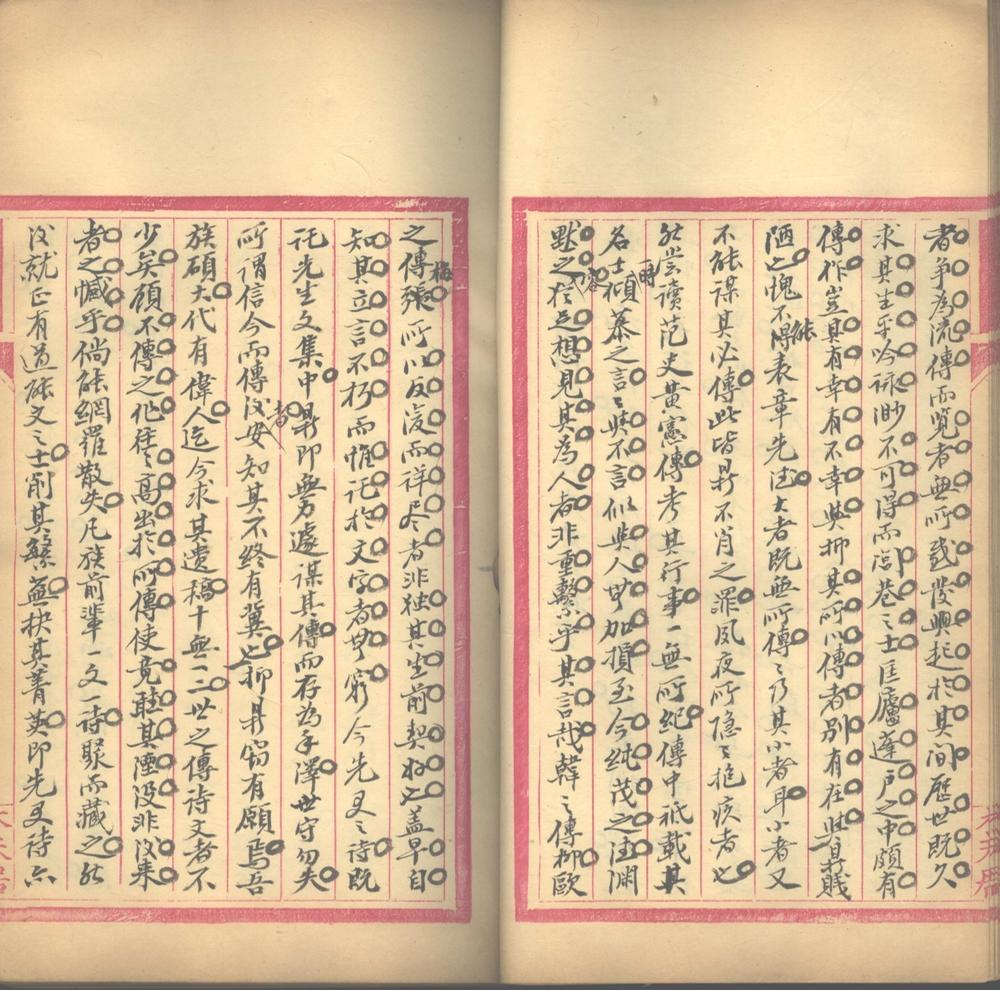 者爭為流傳而覽者無所感發興起於其間歷世既久
求其生平吟詠渺不可得而窮巷之士匡廬蓬戶之中頗有
傳作豈其有幸有不幸與抑其所以傳者別有在與鼎賤
陋之愧不能得表章先德大者既無所傳之乃其小者耳小者又
不能謀其必傳此皆鼎不肖之罪夙夜所隱隱抱疚者也
然嘗讀范史黃憲傳考其行事一無所紀傳中祇載其
時名士傾慕之言言與不言似與人無加損至今純茂之德淵
默之容猶足想見其為人者非重繫乎其言哉韓之傳柳歐
之傳梅張所以反復而詳盡者非独其生前契好也蓋早自
知其立言不朽而惟託於文字者無窮今先君之詩既
託先生文集中鼎即無力遽謀其傳而存為手澤世守勿失
所謂信今而傳後者安知其不終有冀也抑鼎竊有願焉吾
族碩大代有偉人迄今求其遺稿十無一二世之傳詩文者不
少矣顧不傳之作往往高出於所傳使竟聽其湮沒非後来
者之憾乎倘能網羅散失凡族前輩一文一詩聚而藏之然
後就正有道能文之士削其繁蕪抉其菁英即先君詩亦